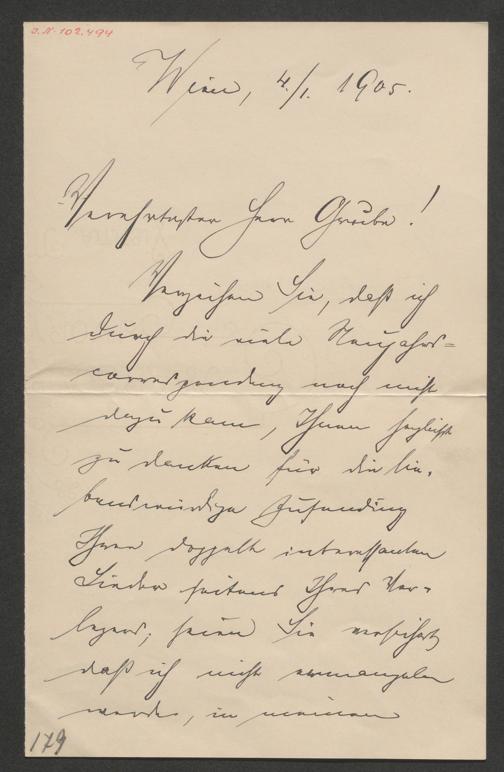 J.N. 102.494
Wien, 4./1. 1905.
Verehrtester Herr Grube!
Verzeihen Sie, daß ich
durch die viele Neujahrs=
correspondenz noch nicht
dazu kam, Ihnen herzlichst
zu danken für die lie-
benswürdige Zusendung
Ihrer doppelt interessanten
Lieder seitens Ihres Ver-
legers; seien Sie versichert,
daß ich nicht ermangeln
werde, in meinem
179